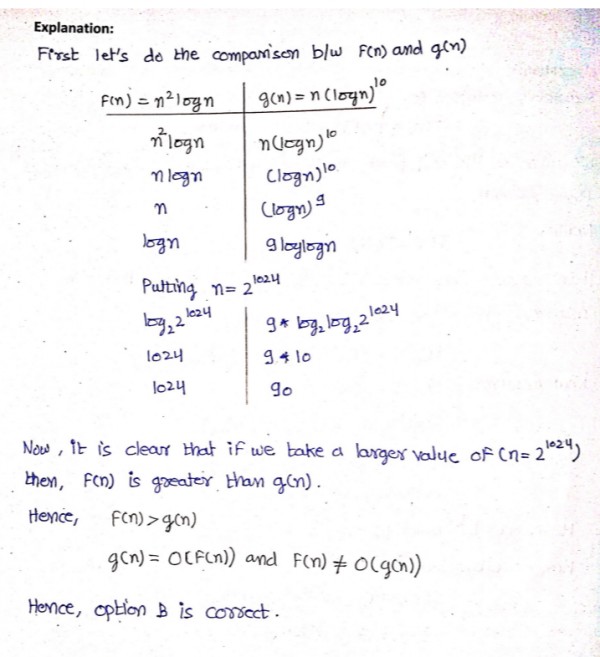 Explanation:
First let's do the comparison b/w F(n) and g(n)
F(n) = n² logn | g(n) = n (logn)¹⁰
n² logn | n(logn)¹⁰
n logn | (logn)¹⁰
n | (logn)⁹
logn | 9 loglogn
Putting n= 2¹⁰²⁴
log₂2¹⁰²⁴ | 9* log₂log₂2¹⁰²⁴
1024 | 9*10
1024 | 90
Now, it is clear that if we take a larger value of (n= 2¹⁰²⁴)
then, F(n) is greater than g(n).
Hence, F(n) > g(n)
g(n) = O(F(n)) and F(n) ≠ O(g(n))
Hence, option B is correct.